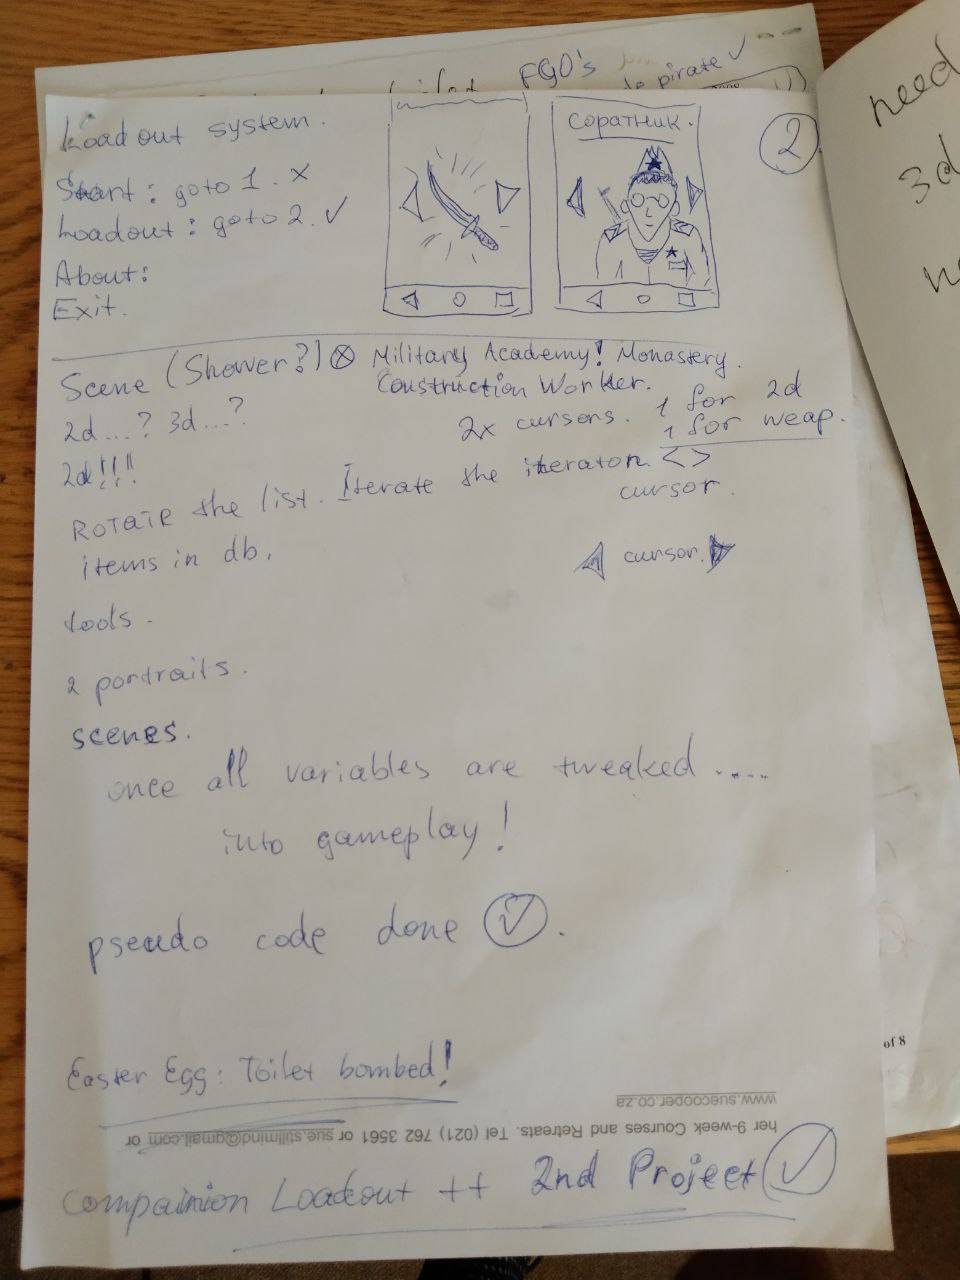 FGO's
pirate ✓
2
Loadout system.
Start: goto 1. x
Loadout: goto 2. ✓
About:
Exit.
соратник.
need
3d
Scene (Shower?) ⊗ Military Academy! Monastery.
Construction Worker.
2d...? 3d...?
2x cursors. 1 for 2d
1 for weap.
2d!!!
Rotate the list. Iterate the iterator. < >
cursor.
items in db.
◁ cursor. ▷
tools.
2 portraits.
scenes.
once all variables are tweaked .....
into gameplay!
pseudo code done ✓.
of 8
Easter Egg: Toilet bombed!
www.suecooper.co.za
her 9-week Courses and Retreats. Tel (021) 762 3561 or sue.stillmind@gmail.com or
compainion Loadout ++ 2nd Project ✓